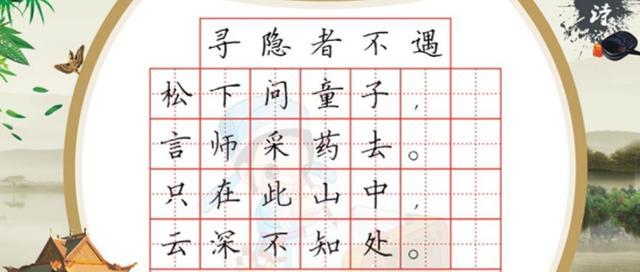 诗
寻隐者不遇
松下问童子，
言师采药去。
只在此山中，
云深不知处。